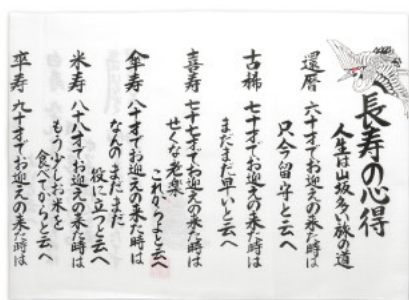 長寿の心得
人生は山坂多い旅の道
還暦 六十才でお迎えの来た時は
只今留守と云へ
古稀 七十才でお迎えの来た時は
まだまだ早いと云へ
喜寿 七十七才でお迎えの来た時は
せくな老楽
これからよと云へ
傘寿 八十才でお迎えの来た時は
なんのまだまだ
役に立つと云へ
米寿 八十八才でお迎えの来た時は
もう少しお米を
食べてからと云へ
卒寿 九十才でお迎えの来た時は